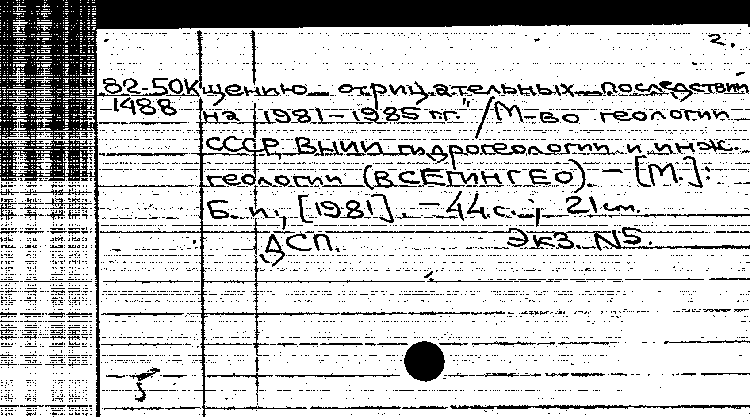 2.
82-50К щению отрицательных последствий
1488 на 1981-1985 гг." /М-во геологии
СССР, ВНИИ гидрогеологии и инж.
геологии (ВСЕГИНГЕО). - [М.]:
Б. и., [1981]. - 44 с.; 21 см.
ДСП. Экз. N5.
5